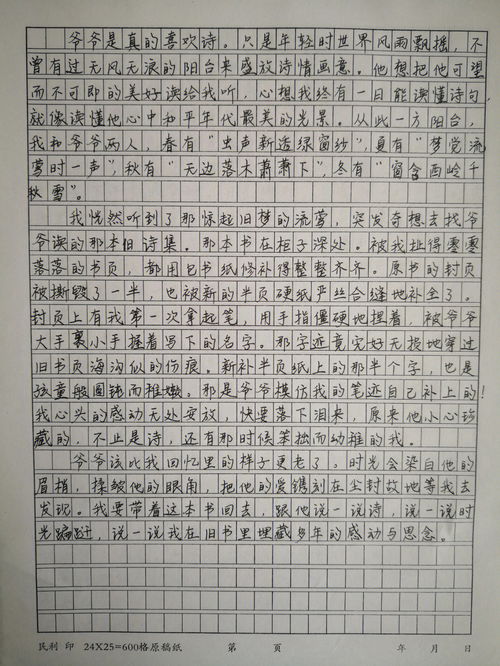 爷爷是真的喜欢诗。只是年轻时世界风雨飘摇，不
曾有过无风无浪的阳台来盛放诗情画意。他想把他可望
而不可即的美好读给我听，心想我终有一日能读懂诗句，
就像读懂他心中和平年代最美的光景。从此一方阳台，
我和爷爷两人，春有“虫声新透绿窗纱”，夏有“梦觉流
莺时一声”，秋有“无边落木萧萧下”，冬有“窗含西岭千
秋雪”。
我恍然听到了那惊起旧梦的流莺，突发奇想去找爷
爷读的那本旧诗集。那本书在柜子深处。被我扯得零零
落落的书页，都用包书纸修补得整整齐齐。原书的封页
被撕毁了一半，也被新的半页硬纸严丝合缝地补全了。
封页上有我第一次拿起笔，用手指僵硬地捏着，被爷爷
大手裹小手握着写下的名字。那字迹竟完好无损地穿过
旧书页海沟似的伤痕。新补半页纸上的那半个字，也是
孩童般圆钝而稚嫩。那是爷爷模仿我的笔迹自己补上的！
我心头的感动无处安放，快要落下泪来，原来他小心珍
藏的，不止是诗，还有那时候笨拙而幼稚的我。
爷爷该比我回忆里的样子更老了。时光会染白他的
眉梢，揉皱他的眼角，把他的爱镌刻在尘封故地等我去
发现。我要带着这本书回去，跟他说一说诗，说一说时
光蹁跹，说一说我在旧书里埋藏多年的感动与思念。
民利 印 24X25=600格原稿纸 第 页 年 月 日